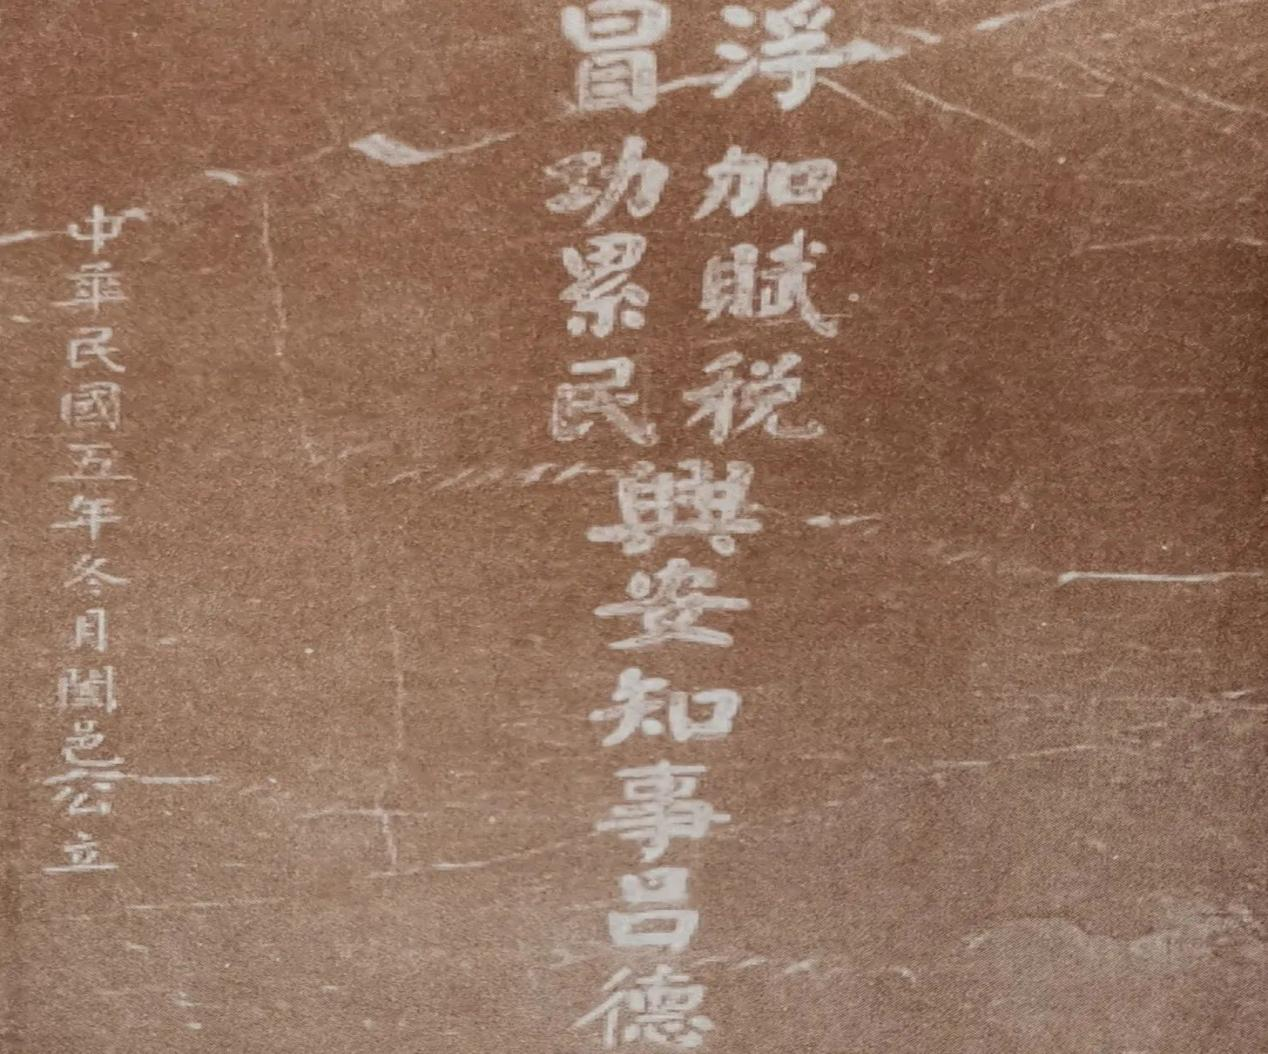 浮加賦税
冒功累民
興安知事呂德
中華民國五年冬月闔邑公立